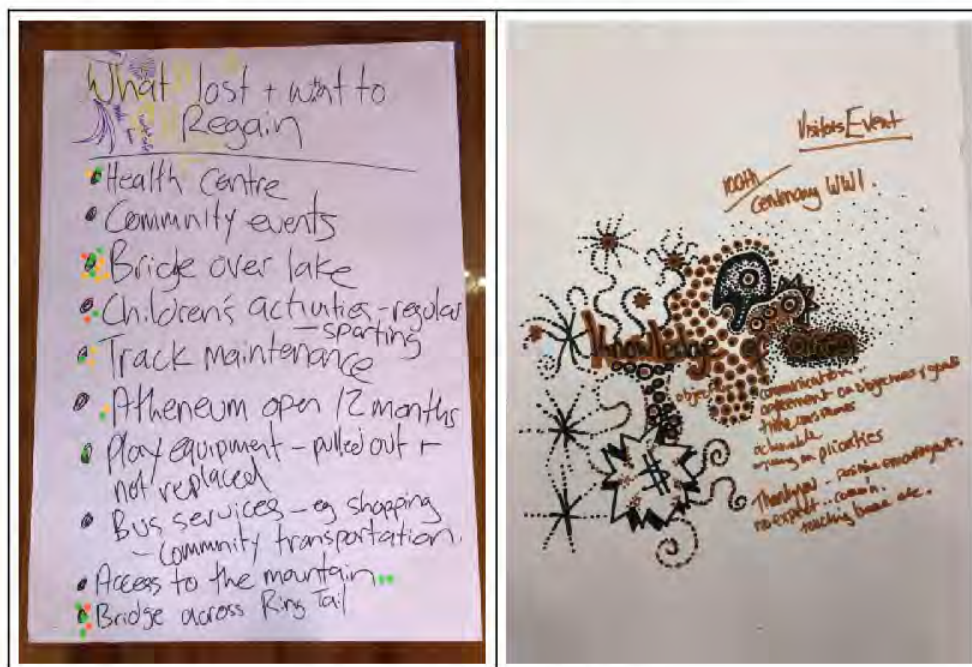 What lost + want to
Regain
Health Centre
Community events
Bridge over lake
Children's activities - regular
- sporting
Track maintenance
Atheneum open 12 months
Play equipment - pulled out +
not replaced
Bus services - eg shopping
- community transportation.
Access to the mountain
Bridge across Ring Tail
Visitors Event
100th
Centenary WWI.
Knowledge of
object
communication...
agreement on objectives & goals
time
achievable
on priorities
Thankyou - positive encouragement.
no
$